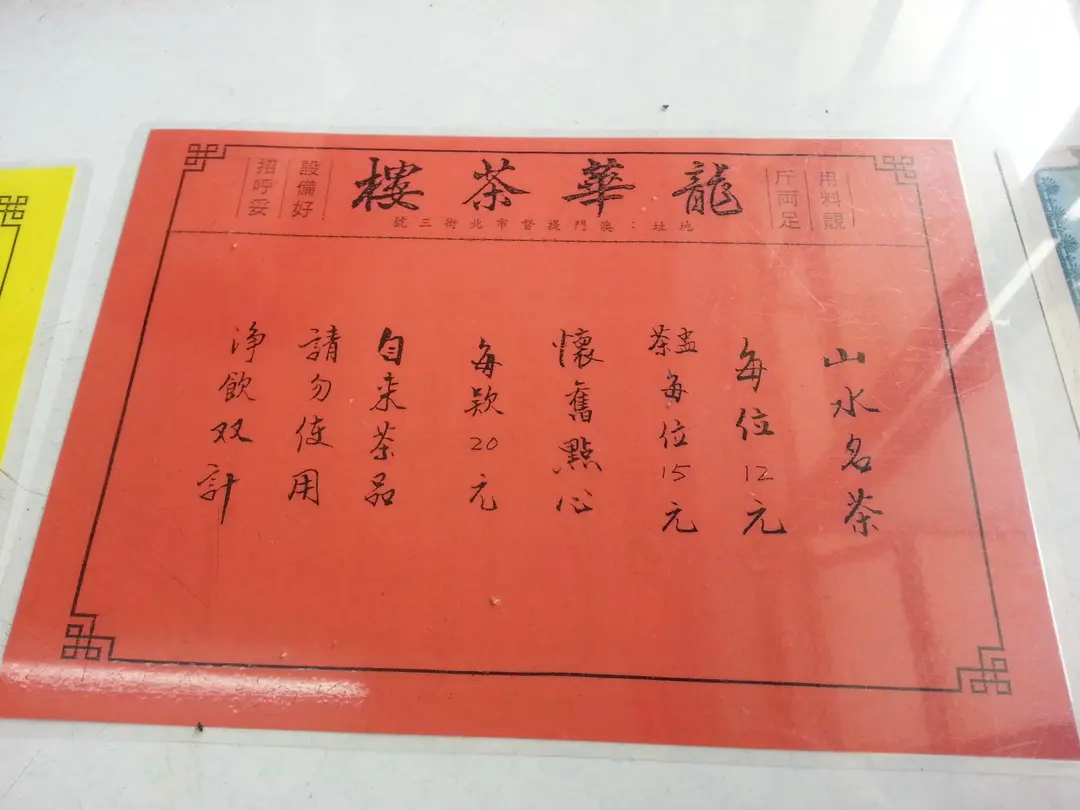 龍華茶樓
地址：澳門提督市北街三號
用料靚
斤両足
設備好
招呼妥
山水名茶
每位12元
茶盅每位15元
懷舊點心
每款20元
自来茶品
請勿使用
净飲双計